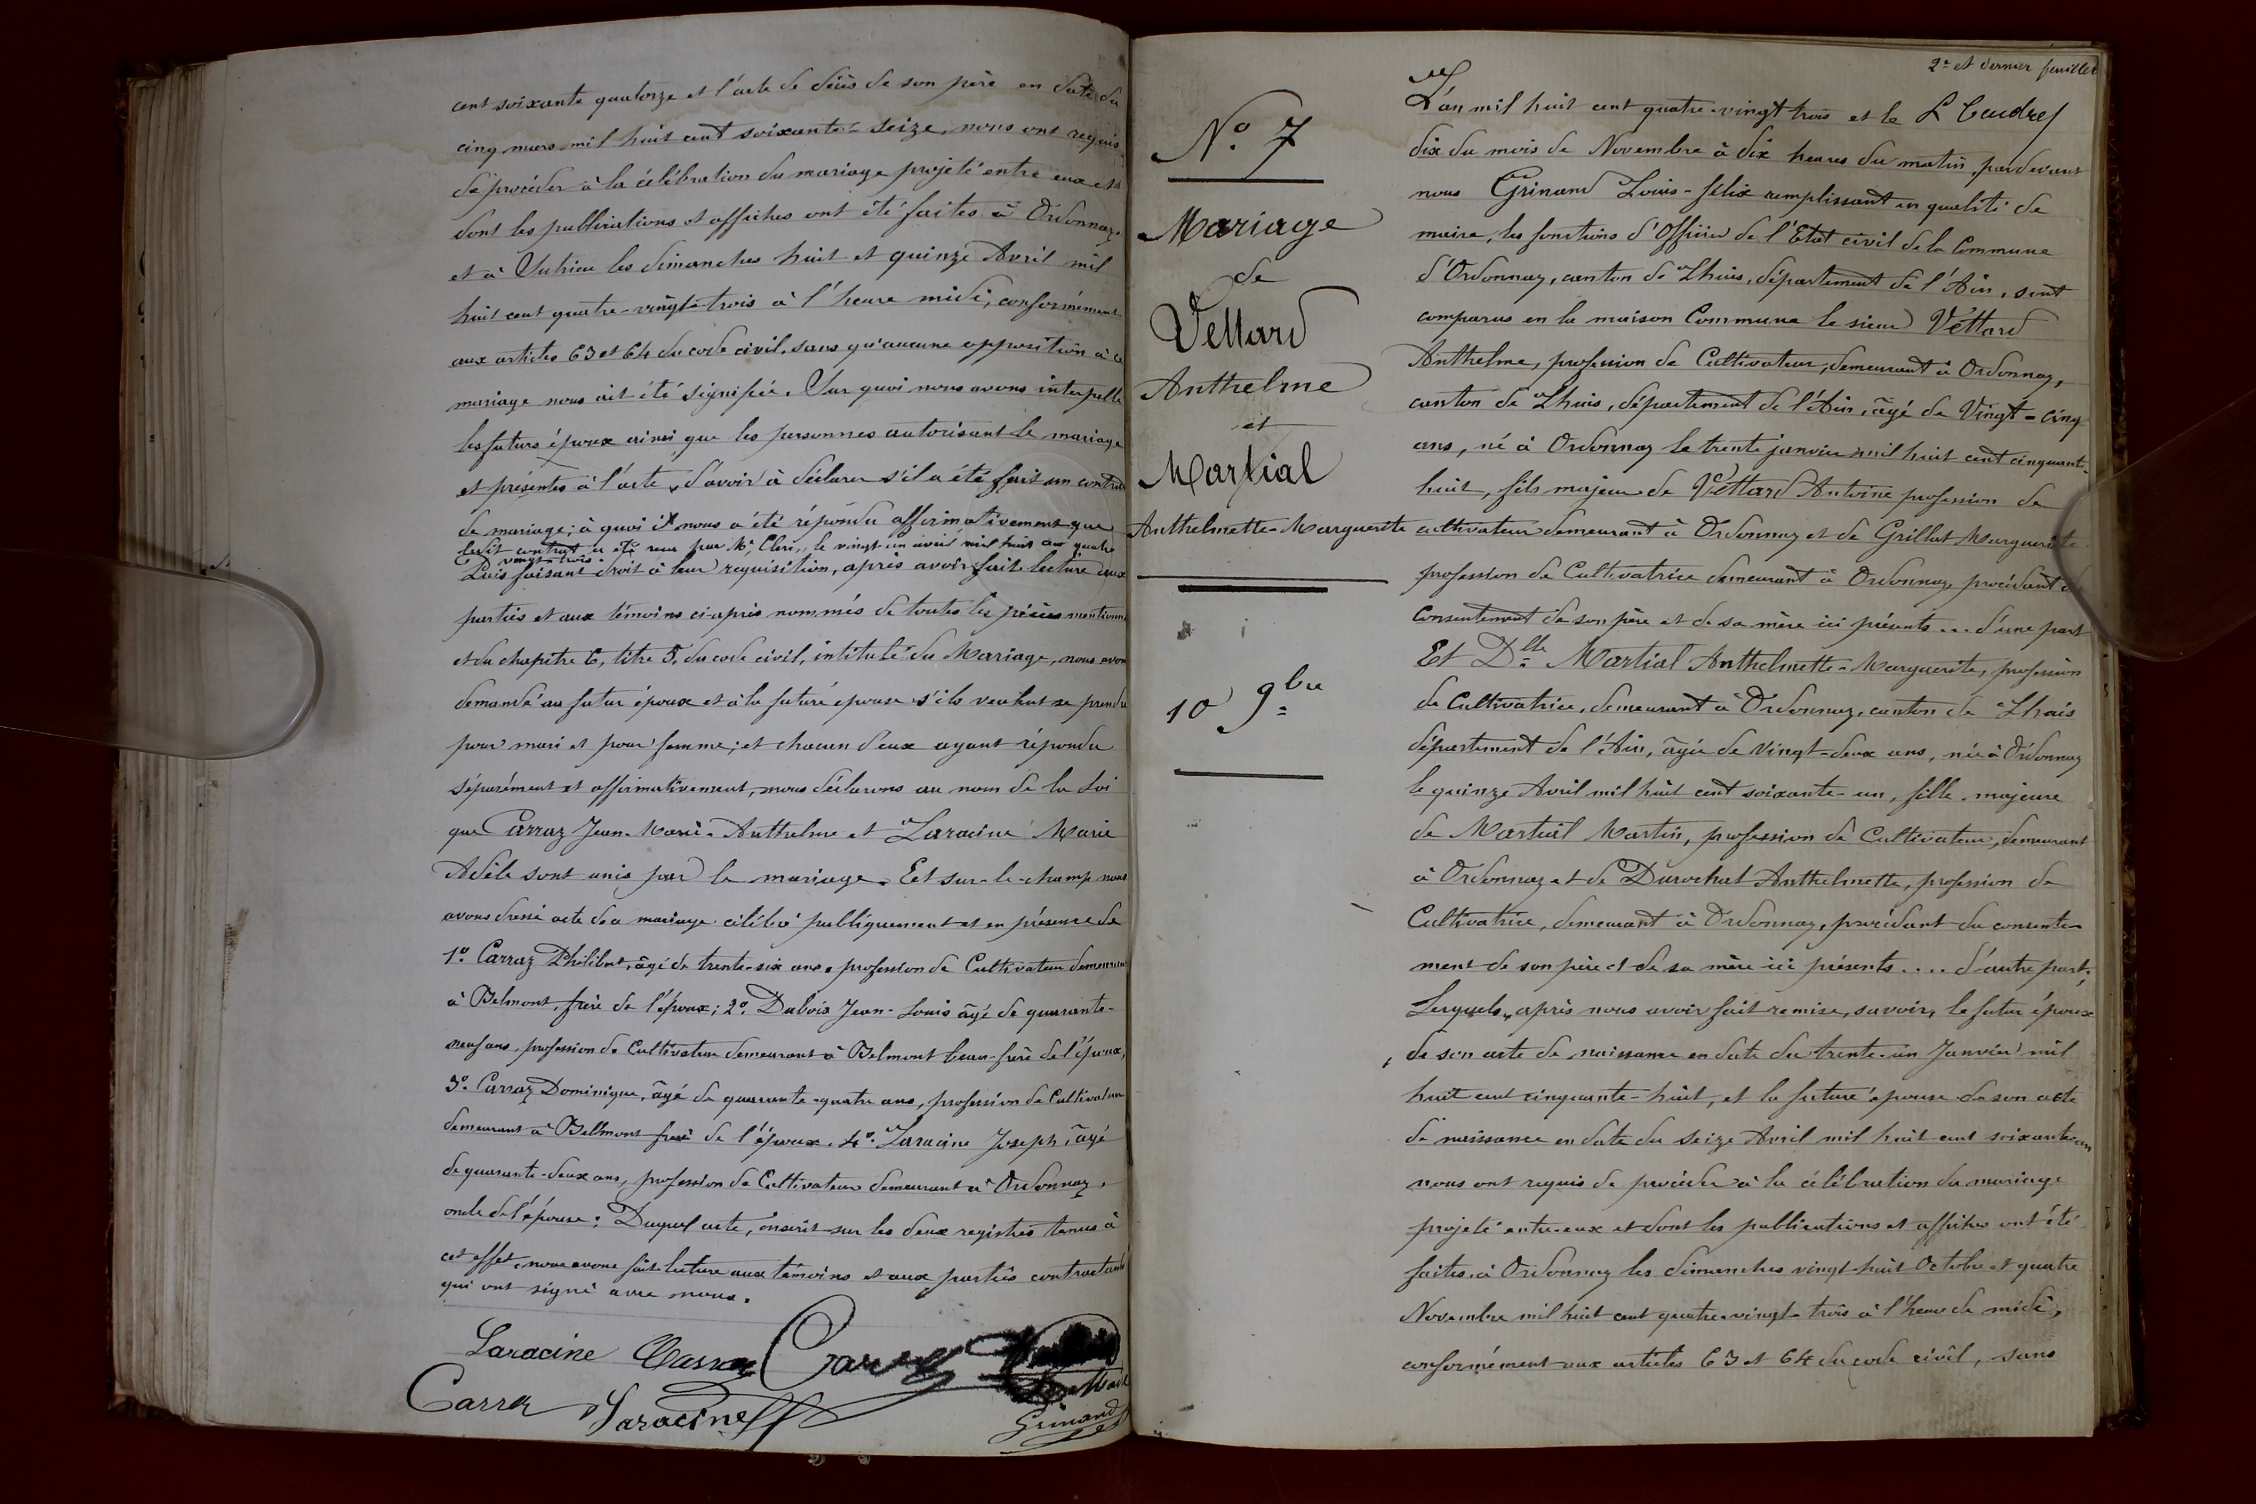 cent soixante quatorze et l'acte de décès de son père en date du
cinq mars mil huit cent soixante-seize, nous ont requis
de procéder à la célébration du mariage projeté entre eux et
dont les publications et affiches ont été faites à Ordonnaz
et à les dimanches huit et quinze Avril mil
huit cent quatre-vingt-trois à l'heure midi, conformément
aux articles 63 et 64 du code civil, sans qu'aucune opposition à ce
mariage nous ait été signifiée. Sur quoi nous avons interpellé
les futurs époux ainsi que les personnes autorisant le mariage
et présentes à l'acte, d'avoir à déclarer s'il a été fait un contrat
de mariage; à quoi il nous a été répondu affirmativement que
ledit contrat a été reçu par Me Clerc, le vingt-un avril mil huit cent quatre
vingt-trois.
Puis faisant droit à leur requisition, après avoir fait lecture aux
parties et aux témoins ci-après nommés de toutes les pièces mentionnées
et du chapitre 6, titre 5, du code civil, intitulé du Mariage, nous avons
demandé au futur époux et à la future épouse s'ils veulent se prendre
pour mari et pour femme; et chacun d'eux ayant répondu
séparément et affirmativement, nous déclarons au nom de la Loi
que Carraz Jean-Marie-Anthelme et Laracine Marie
Adèle sont unis par le mariage. Et sur-le-champ nous
avons dressé acte de ce mariage célébré publiquement et en présence de
1º. Carraz Philibert, âgé de trente-six ans, profession de Cultivateur demeurant
à Belmont, frère de l'époux; 2º. Dubois Jean-Louis âgé de quarante-
neuf ans, profession de Cultivateur demeurant à Belmont beau-frère de l'époux,
3º. Carraz Dominique, âgé de quarante-quatre ans, profession de Cultivateur
demeurant à Bellmont frère de l'époux. 4º. Laracine Joseph, âgé
de quarante-deux ans, profession de Cultivateur demeurant à Ordonnaz,
oncle de l'épouse; Duquel acte, inscrit sur les deux registres tenus à
cet effet, nous avons fait lecture aux témoins et aux parties contractantes
qui ont signé avec nous.
Laracine Carraz Carraz
Carraz Laracine
Grinand
Nº. 7
Mariage
de
Véttard
Anthelme
et
Martial
Anthelmette-Marguerite
10 9bre
2e et dernier feuillet
L'an mil huit cent quatre-vingt trois et le
dix du mois de Novembre à dix heures du matin, pardevant
nous Grinand Louis-félix remplissant en qualité de
maire, les fonctions d'Officier de l'Etat civil de la Commune
d'Ordonnaz, canton de Lhuis, département de l'Ain, sont
comparus en la maison Commune le sieur Véttard
Anthelme, profession de Cultivateur, demeurant à Ordonnaz,
canton de Lhuis, département de l'Ain, âgé de Vingt-cinq
ans, né à Ordonnaz le trente janvier mil huit cent cinquante-
huit, fils majeur de Véttard Antoine profession de
cultivateur demeurant à Ordonnaz et de Grillat Marguerite
profession de Cultivatrice demeurant à Ordonnaz, procédant du
consentement de son père et de sa mère ici présents ... d'une part
Et Dlle Martial Anthelmette-Marguerite, profession
de Cultivatrice, demeurant à Ordonnaz, canton de Lhuis
département de l'Ain, âgée de Vingt-deux ans, née à Ordonnaz
le quinze Avril mil huit cent soixante-un, fille majeure
de Martial Martin, profession de Cultivateur, demeurant
à Ordonnaz et de Durochat Anthelmette, profession de
Cultivatrice, demeurant à Ordonnaz, procédant du consente-
ment de son père et de sa mère ici présents .... d'autre part,
Lesquels, après nous avoir fait remise, savoir, le futur époux
de son acte de naissance en date du trente-un Janvier mil
huit cent cinquante-huit, et la future épouse de son acte
de naissance en date du seize Avril mil huit cent soixante-un
nous ont requis de procéder à la célébration du mariage
projeté entre eux et dont les publications et affiches ont été
faites à Ordonnaz les dimanches vingt-huit Octobre et quatre
Novembre mil huit cent quatre-vingt-trois à l'heure de midi,
conformément aux articles 63 et 64 du code civil, sans